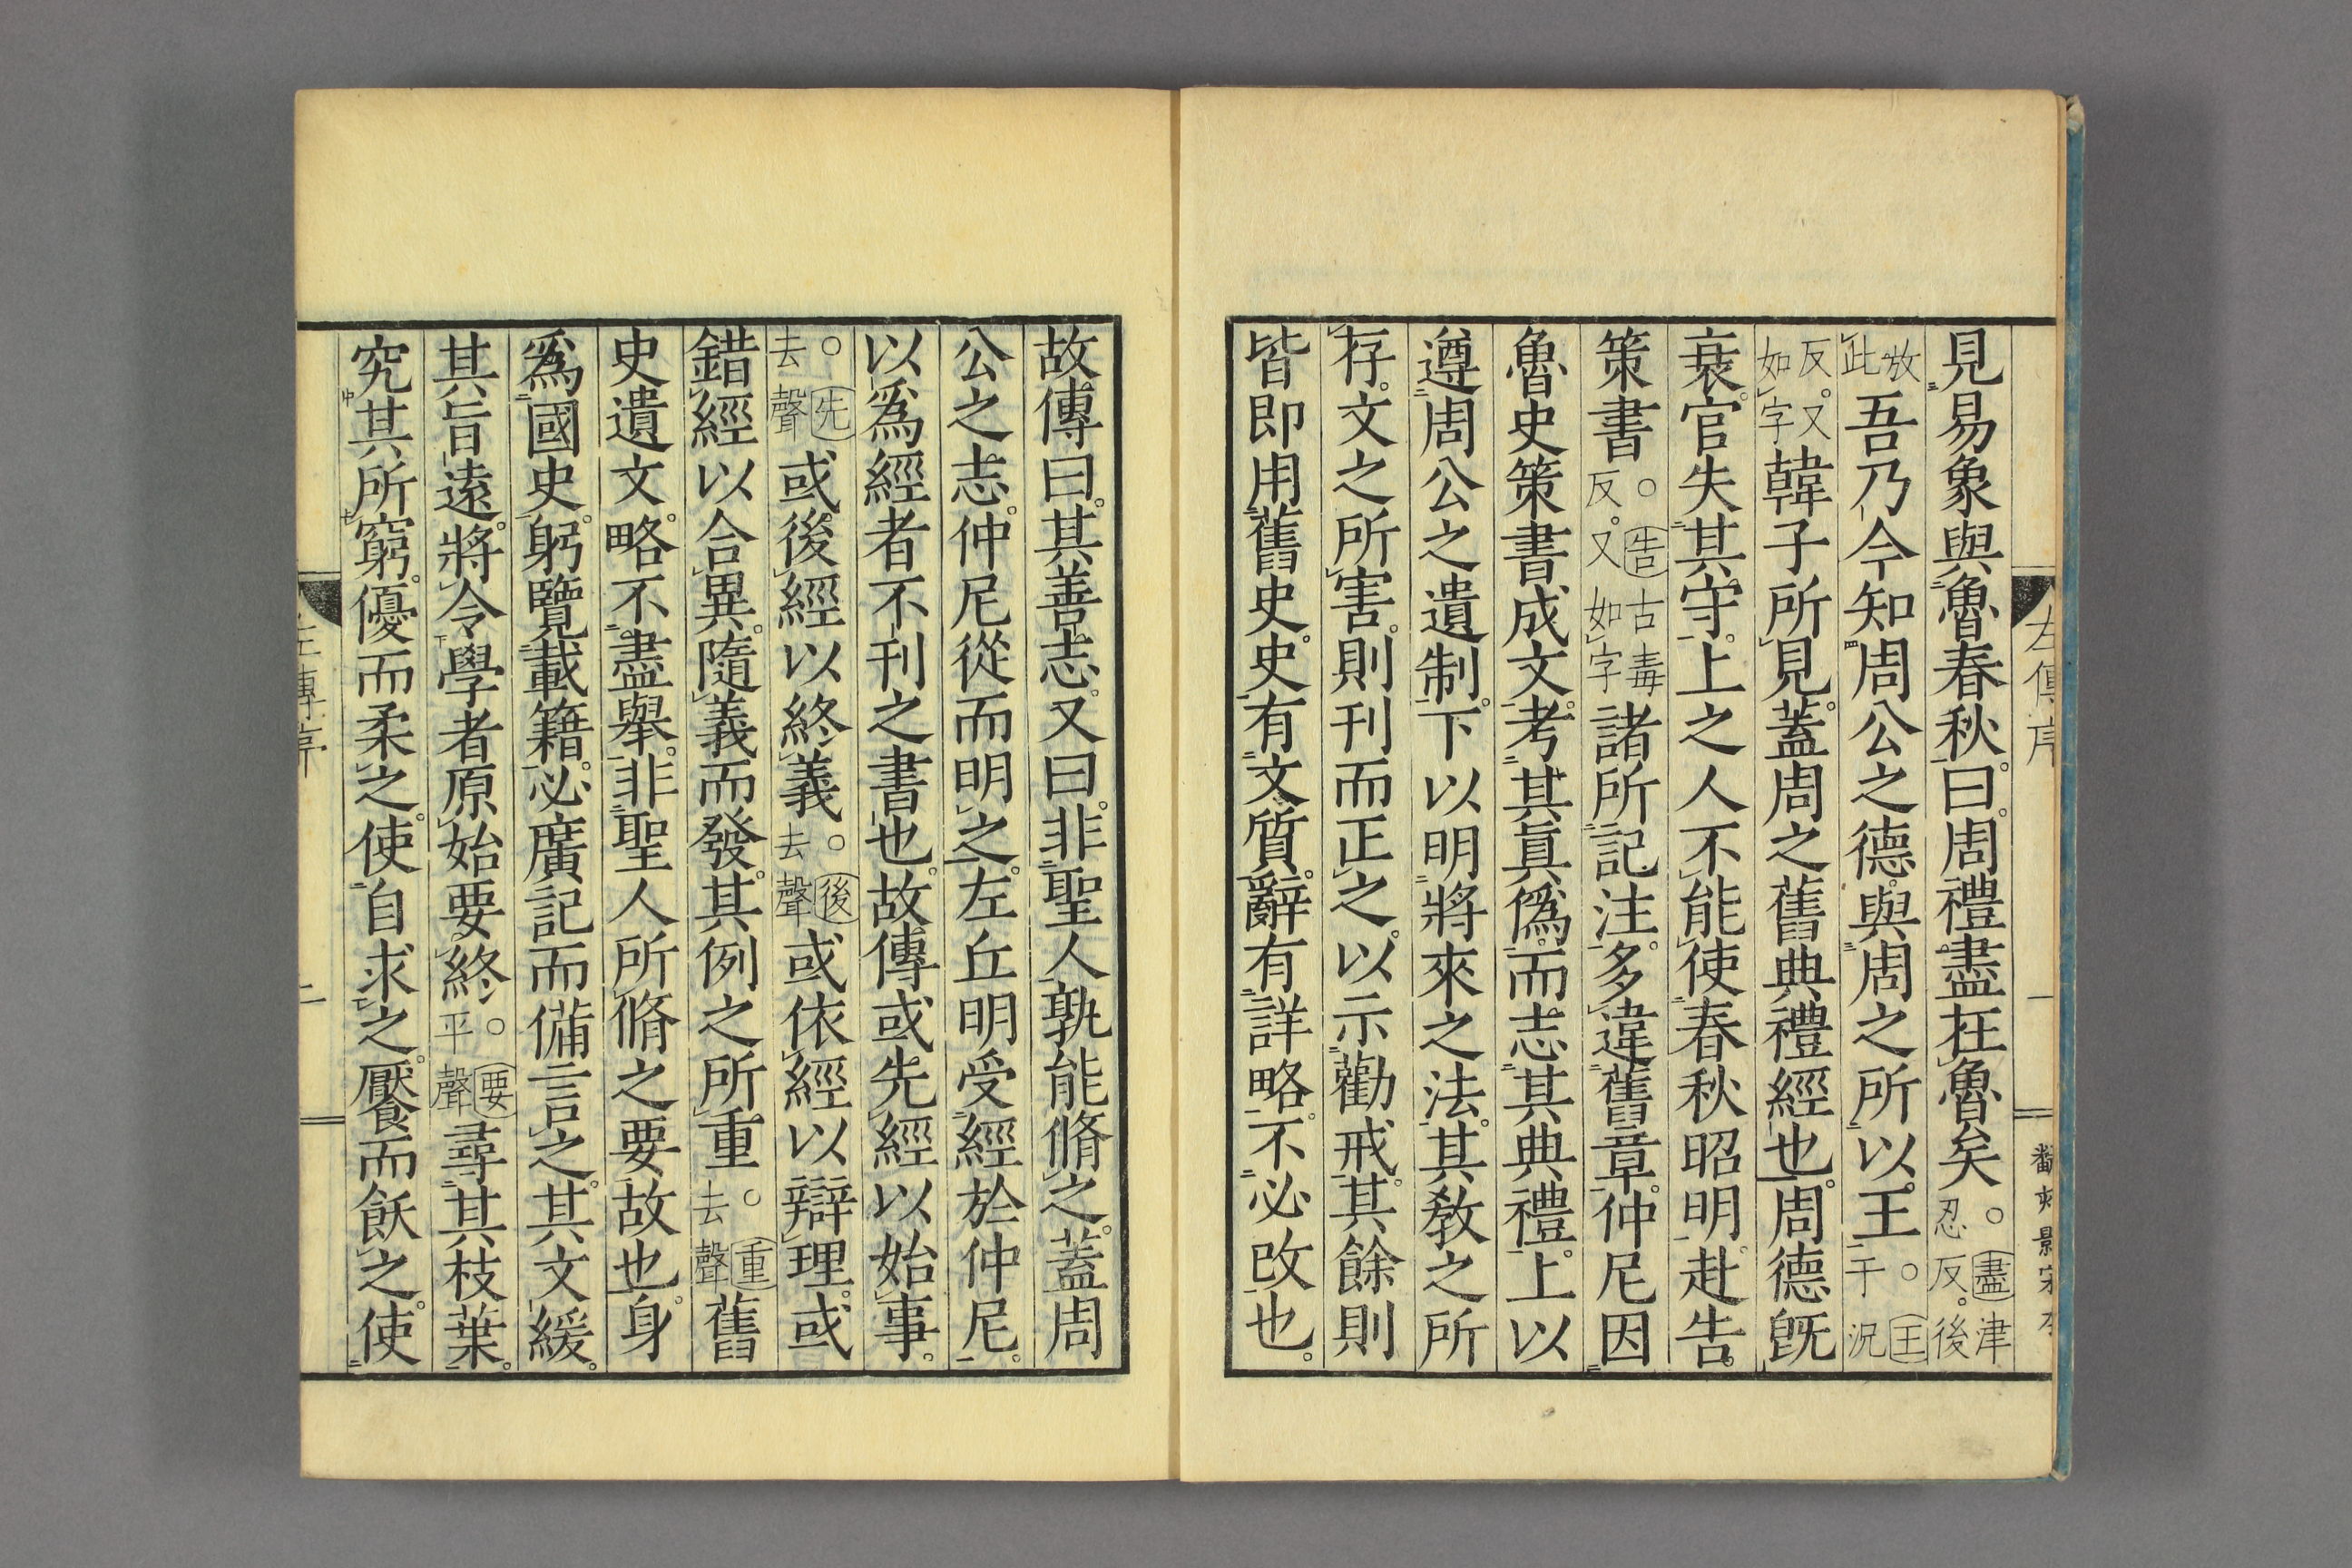 見易象與魯春秋。曰。周禮盡在魯矣。○盡津忍反。後
放此吾乃今知周公之德。與周之所以王。○王于況
反。又如字韓子所見。蓋周之舊典禮經也。周德既
衰。官失其守。上之人不能使春秋昭明。赴告
策書。○告古毒反。又如字諸所記注。多違舊章。仲尼因
魯史策書成文。考其眞僞。而志其典禮。上以
遵周公之遺制。下以明將來之法。其敎之所
存。文之所害。則刊而正之。以示勸戒。其餘則
皆即用舊史。史有文質。辭有詳略。不必改也。
故傳曰。其善志。又曰。非聖人孰能脩之。蓋周
公之志。仲尼從而明之。左丘明受經於仲尼。
以爲經者不刊之書也。故傳或先經以始事。
○先去聲或後經以終義。○後去聲或依經以辯理。或
錯經以合異。隨義而發。其例之所重。○重去聲舊
史遺文。略不盡舉。非聖人所脩之要故也。身
爲國史。躬覽載籍。必廣記而備言之。其文緩。
其旨遠。將令學者原始要終。○要平聲尋其枝葉。
究其所窮。優而柔之。使自求之。饜而飫之。使
左傳序
一